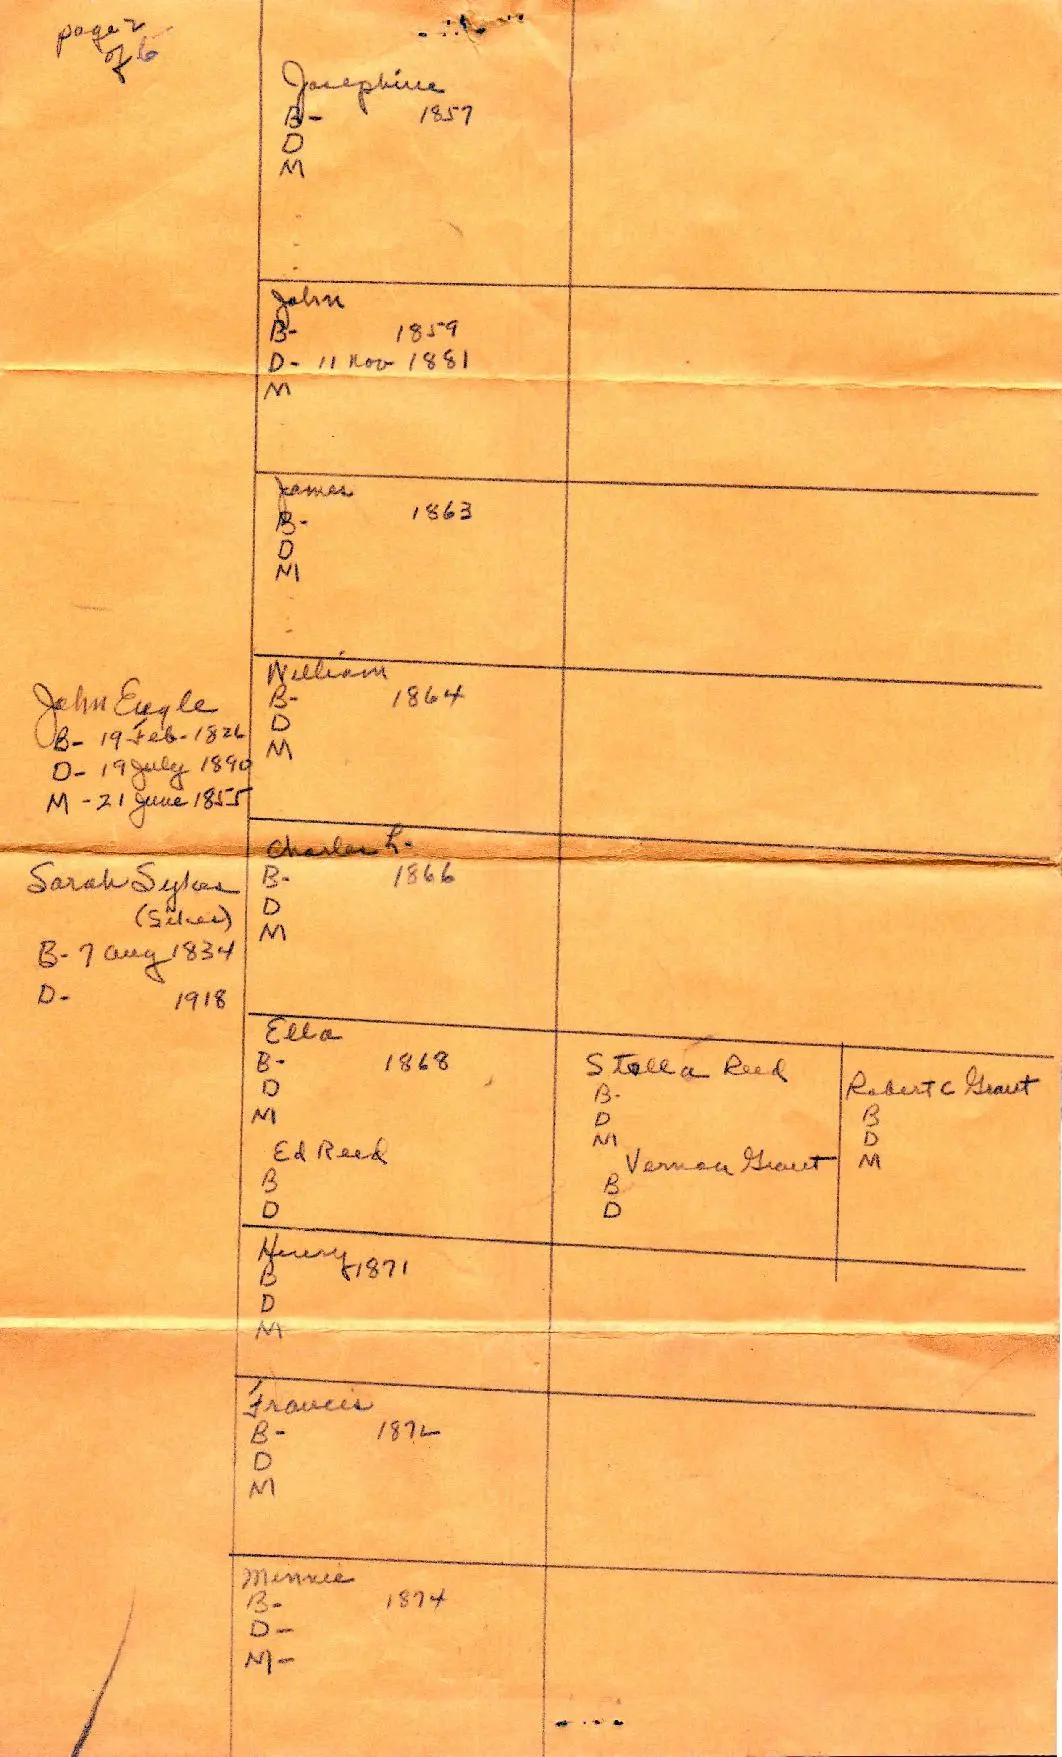 page 2
of 6
Josephine
B- 1857
D
M
John
B- 1859
D- 11 Nov 1881
M
James
B- 1863
D
M
John Engle
B- 19 Feb-1826
D- 19 July 1890
M -21 June 1855
Sarah Sykes
(Sikes)
B- 7 Aug 1834
D- 1918
William
B- 1864
D
M
Charles L.
B- 1866
D
M
Ella
B- 1868
D
M
Ed Reed
B
D
Stella Reed
B-
D
M
Vernon Grant
B
D
Robert C Grant
B
D
M
Henry
B 1871
D
M
Francis
B- 1872
D
M
Minnie
B- 1874
D-
M-